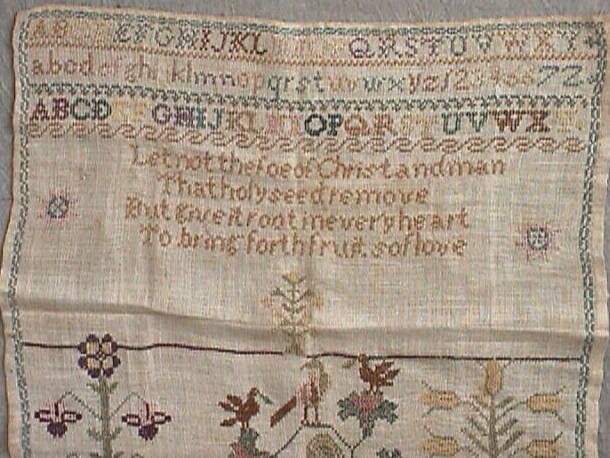 AB EFGHIJKL QRSTUVWXY
abcdefghijklmnopqrstuvwxyz12 72
ABCD GHIJKL OPQRSTUVWX
Let not the foe of Christ and man
That holy seed remove
But give it root in every heart
To bring forth fruits of love